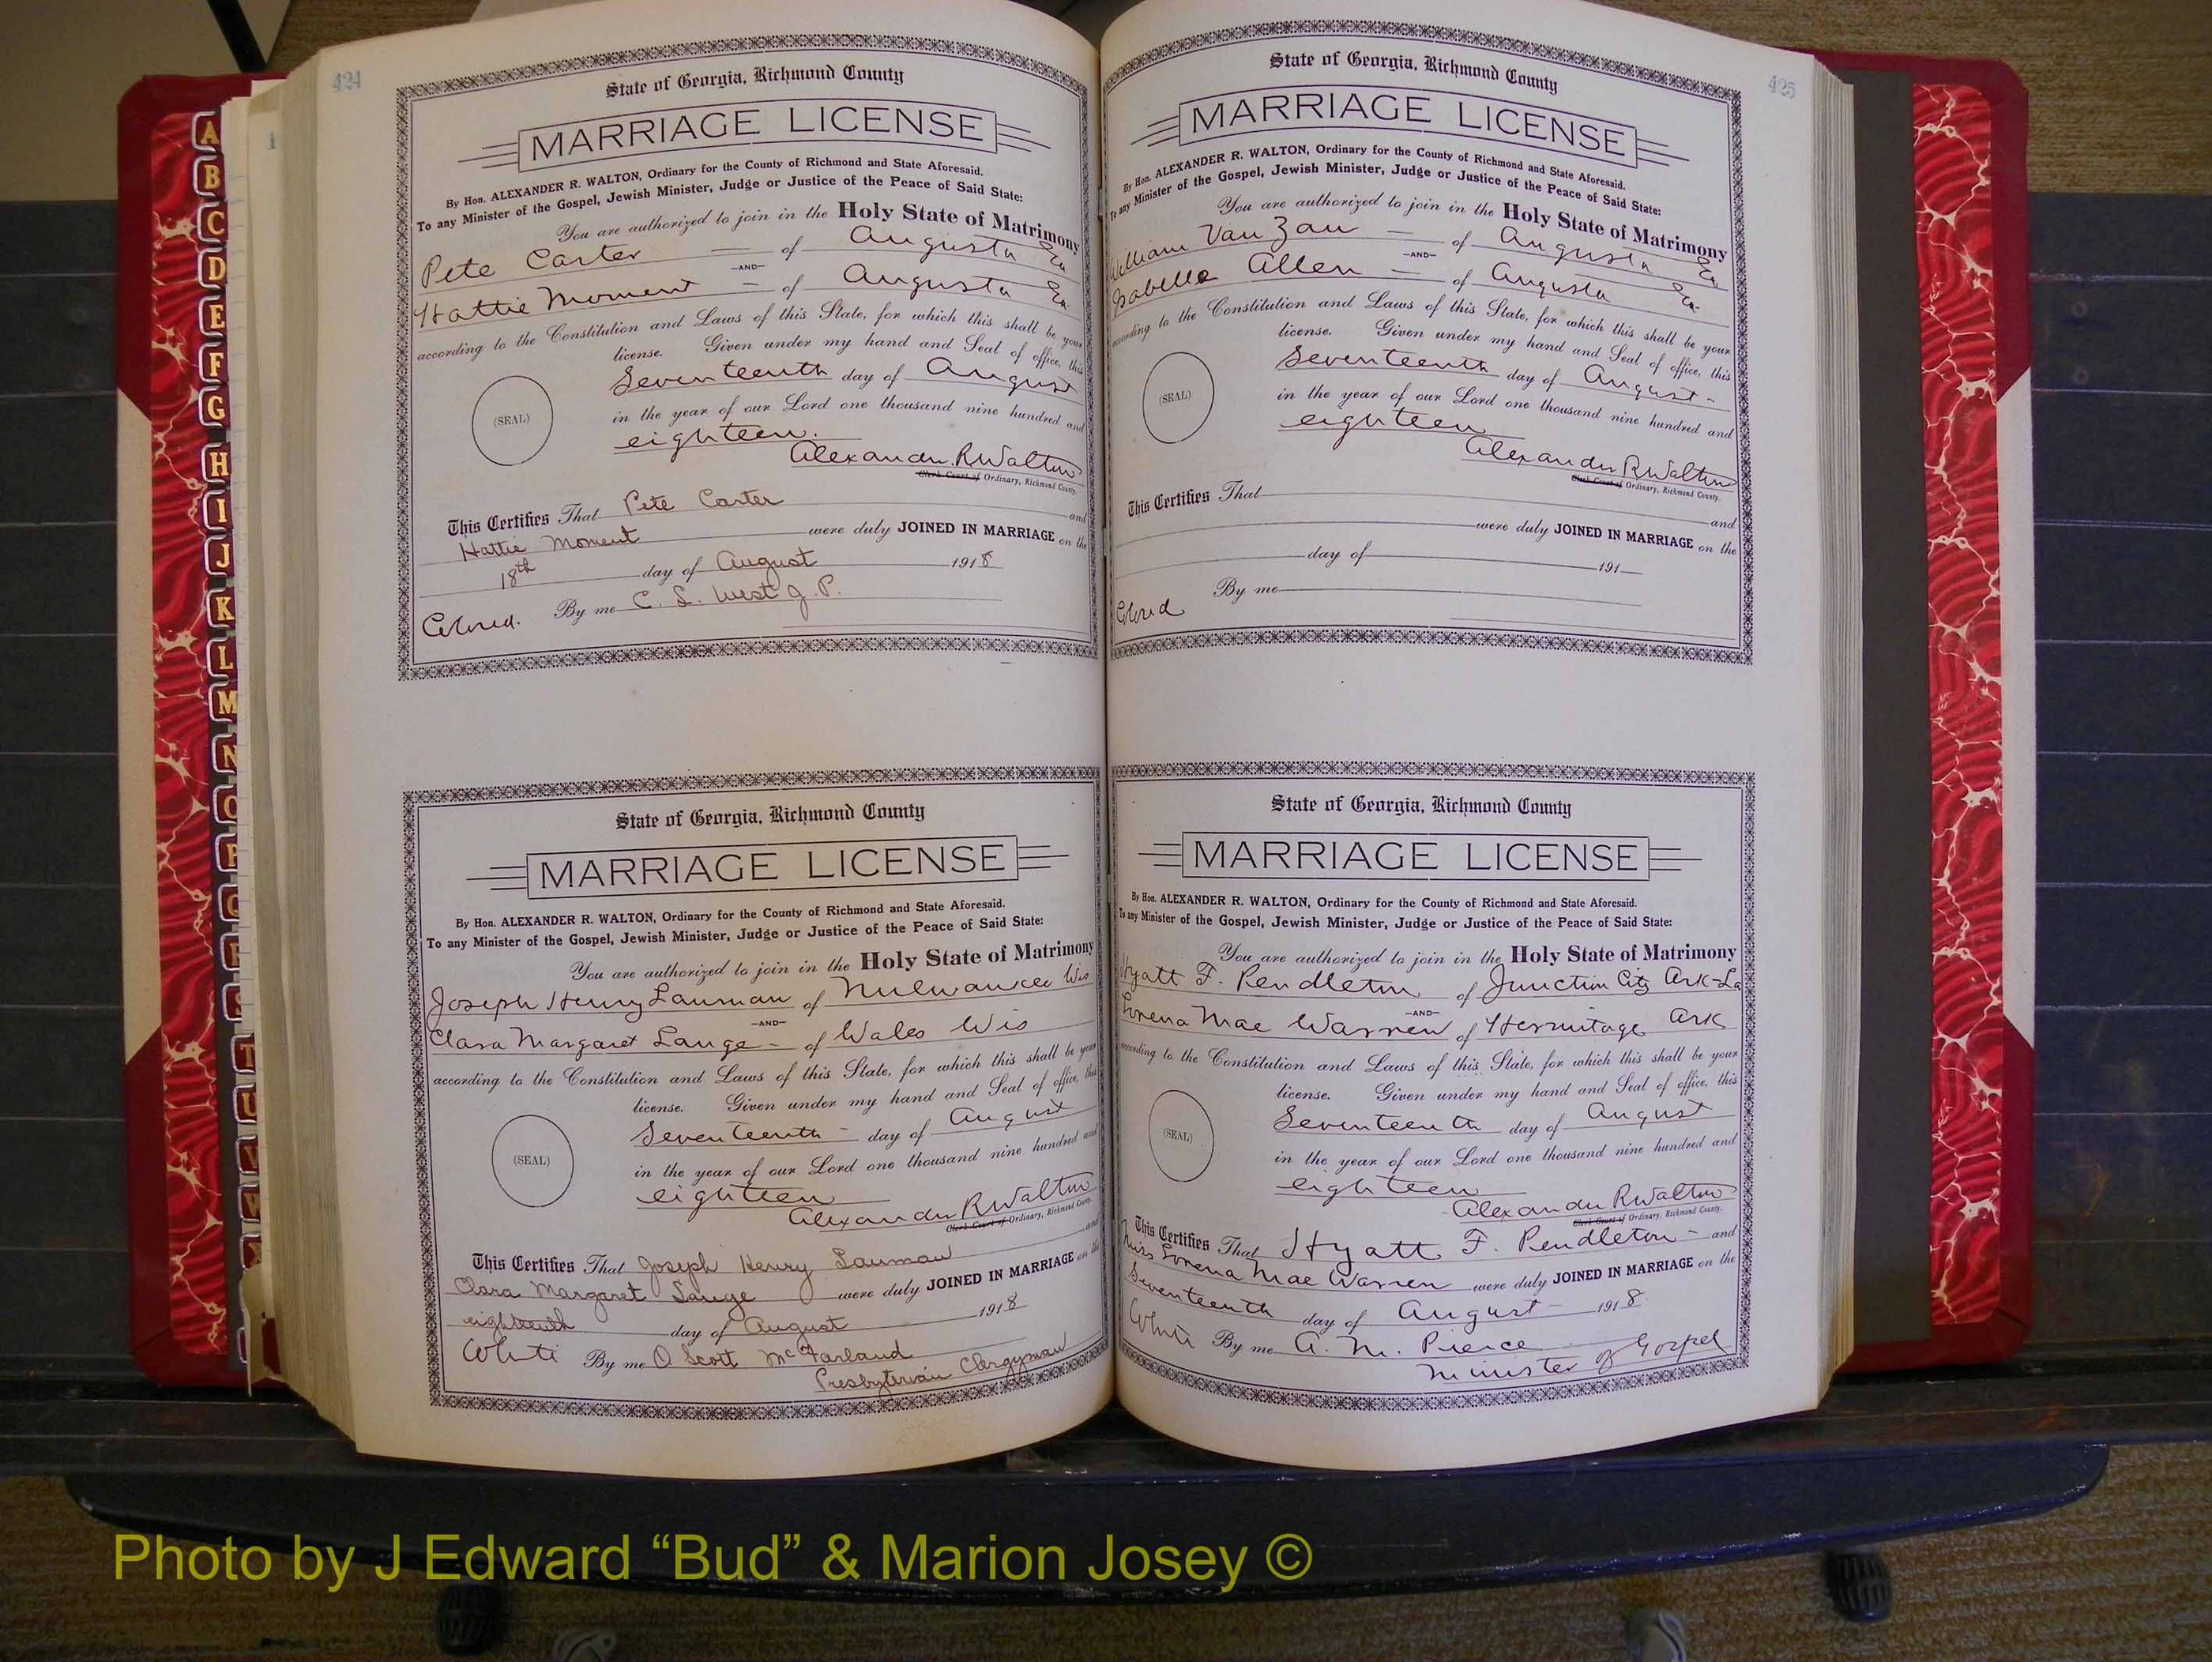 424
State of Georgia, Richmond County
MARRIAGE LICENSE
By Hon. ALEXANDER R. WALTON, Ordinary for the County of Richmond and State Aforesaid.
To any Minister of the Gospel, Jewish Minister, Judge or Justice of the Peace of Said State:
You are authorized to join in the Holy State of Matrimony
Pete Carter of Augusta Ga
—AND—
Hattie Moment of Augusta Ga
according to the Constitution and Laws of this State, for which this shall be your
license. Given under my hand and Seal of office, this
Seventeenth day of August
(SEAL)
in the year of our Lord one thousand nine hundred and
eighteen.
Alexander R Walton
Clerk Court of Ordinary, Richmond County.
This Certifies That Pete Carter and
Hattie Moment were duly JOINED IN MARRIAGE on the
18th day of August 1918
Colored. By me C. L. West J. P.
State of Georgia, Richmond County
MARRIAGE LICENSE
By Hon. ALEXANDER R. WALTON, Ordinary for the County of Richmond and State Aforesaid.
To any Minister of the Gospel, Jewish Minister, Judge or Justice of the Peace of Said State:
You are authorized to join in the Holy State of Matrimony
Joseph Henry Lauman of Milwaukee Wis
—AND—
Clara Margaret Lange of Wales Wis
according to the Constitution and Laws of this State, for which this shall be your
license. Given under my hand and Seal of office, this
Seventeenth day of August
(SEAL)
in the year of our Lord one thousand nine hundred and
eighteen
Alexander R Walton
Clerk Court of Ordinary, Richmond County.
This Certifies That Joseph Henry Lauman and
Clara Margaret Lange were duly JOINED IN MARRIAGE on the
eighteenth day of August 1918
White By me O Scott McFarland
Presbyterian Clergyman
425
State of Georgia, Richmond County
MARRIAGE LICENSE
By Hon. ALEXANDER R. WALTON, Ordinary for the County of Richmond and State Aforesaid.
To any Minister of the Gospel, Jewish Minister, Judge or Justice of the Peace of Said State:
You are authorized to join in the Holy State of Matrimony
William Van Zau of Augusta Ga
—AND—
Isabella Allen of Augusta Ga.
according to the Constitution and Laws of this State, for which this shall be your
license. Given under my hand and Seal of office, this
Seventeenth day of August
(SEAL)
in the year of our Lord one thousand nine hundred and
eighteen
Alexander R Walton
Clerk Court of Ordinary, Richmond County.
This Certifies That and
were duly JOINED IN MARRIAGE on the
day of 191
Colored By me
State of Georgia, Richmond County
MARRIAGE LICENSE
By Hon. ALEXANDER R. WALTON, Ordinary for the County of Richmond and State Aforesaid.
To any Minister of the Gospel, Jewish Minister, Judge or Justice of the Peace of Said State:
You are authorized to join in the Holy State of Matrimony
Hyatt F. Pendleton of Junction City Ark-La
—AND—
Lorena Mae Warren of Hermitage Ark
according to the Constitution and Laws of this State, for which this shall be your
license. Given under my hand and Seal of office, this
Seventeenth day of August
(SEAL)
in the year of our Lord one thousand nine hundred and
eighteen
Alexander R Walton
Clerk Court of Ordinary, Richmond County.
This Certifies That Hyatt F. Pendleton and
Miss Lorena Mae Warren were duly JOINED IN MARRIAGE on the
Seventeenth day of August 1918
White By me A. M. Pierce
Minister of Gospel
A
B
C
D
E
F
G
H
I
J
K
L
M
N
O
P
Q
R
S
T
U
V
W
X
Photo by J Edward “Bud” & Marion Josey ©